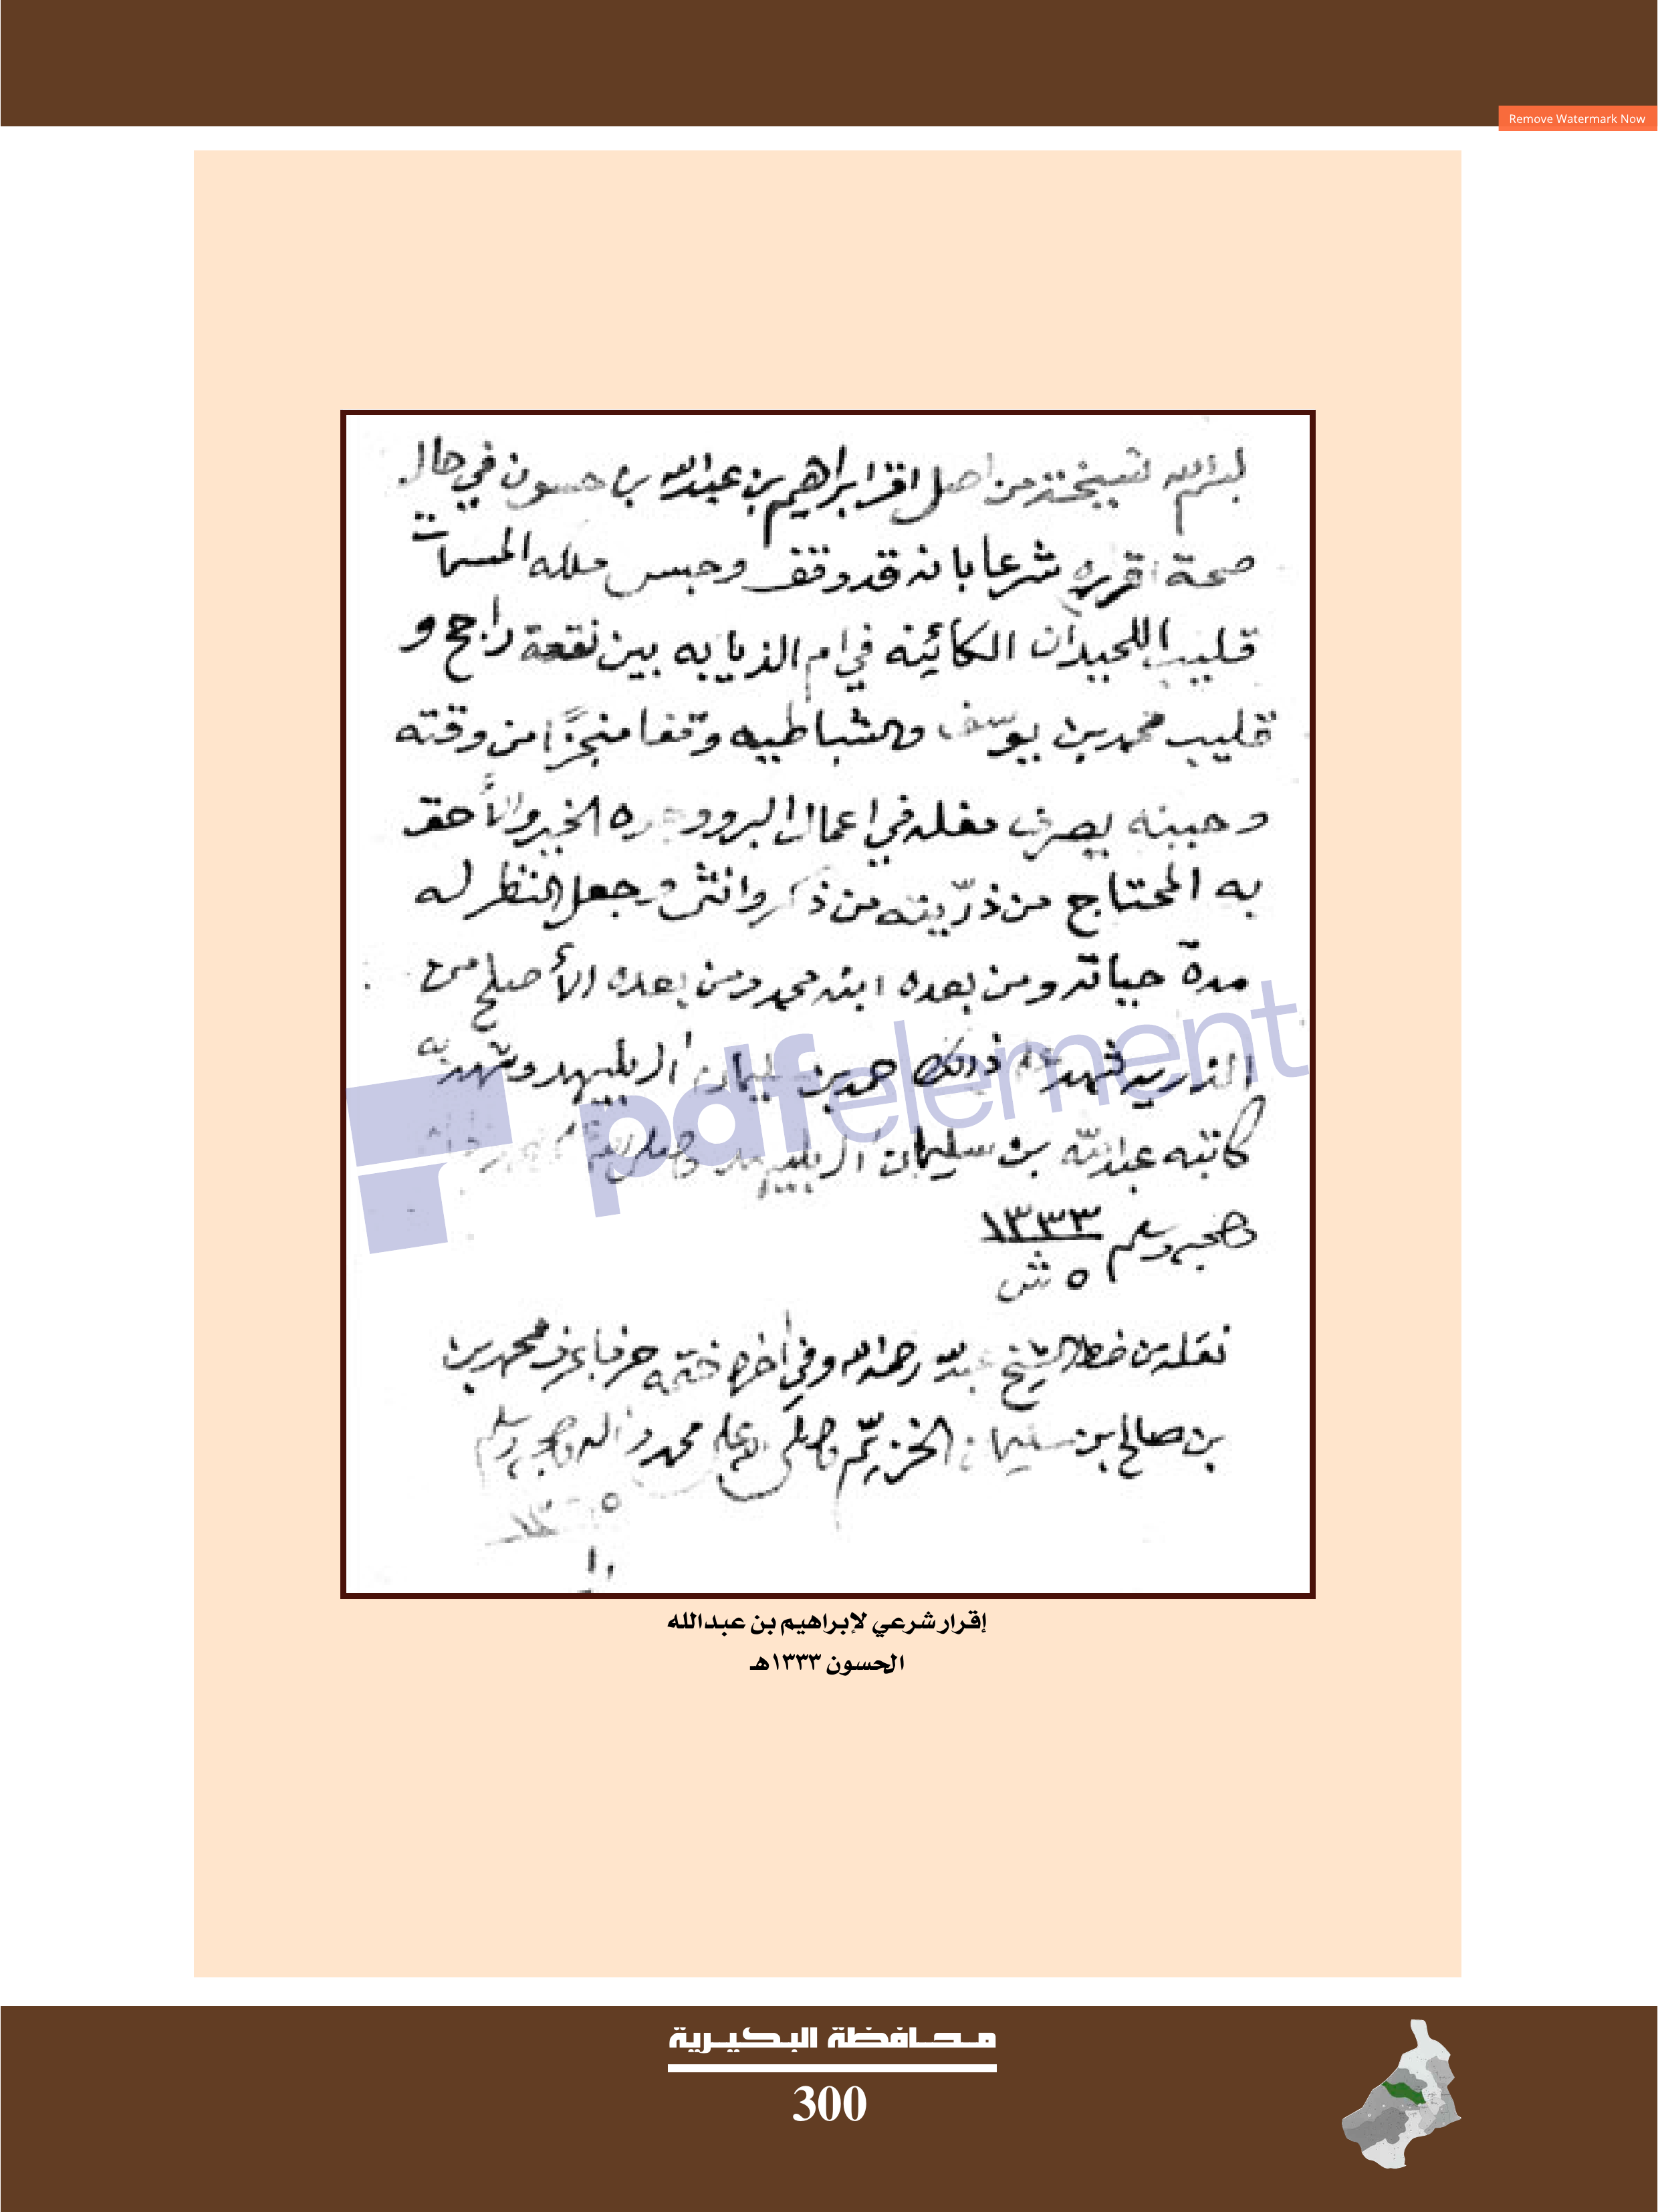 Remove Watermark Now
بسم الله نسيخته من اصل اقر ابراهيم بن عبدالله بن حسون في حال
صحة اقراره شرعا بانه قد وقف وحبس ملكه المسمات
قليب اللحيدان الكائينه في ام الذيابه بين نقعة راجح و
قليب محمد بن يوسف والشباطيه وقفا منجزًا من وقته
وحينه يصرف مغله في اعمال البر ووجوه الخير والأحق
به المحتاج من ذرّيته من ذكر وانثى وجعل النظر له
مدة حياته ومن بعده ابنه محمد ومن بعده الأصلح من
الذريه شهد على ذالك حمد بن سليمان البليهد وشهد به
كاتبه عبدالله بن سليمان البليهد وصلى الله على محمد
وصحبه وسلم ١٣٣٣
٥ ش
نقله من خط الشيخ عبدالله رحمه الله وفي آخره ختمه حرفا بحرف محمد بن
بن صالح بن سليمان الخزيّم وصلى الله على محمد واله وصحبه وسلم
pdfelement
إقرار شرعي لإبراهيم بن عبدالله
الحسون ١٣٣٣هـ
محافظة البكيرية
300